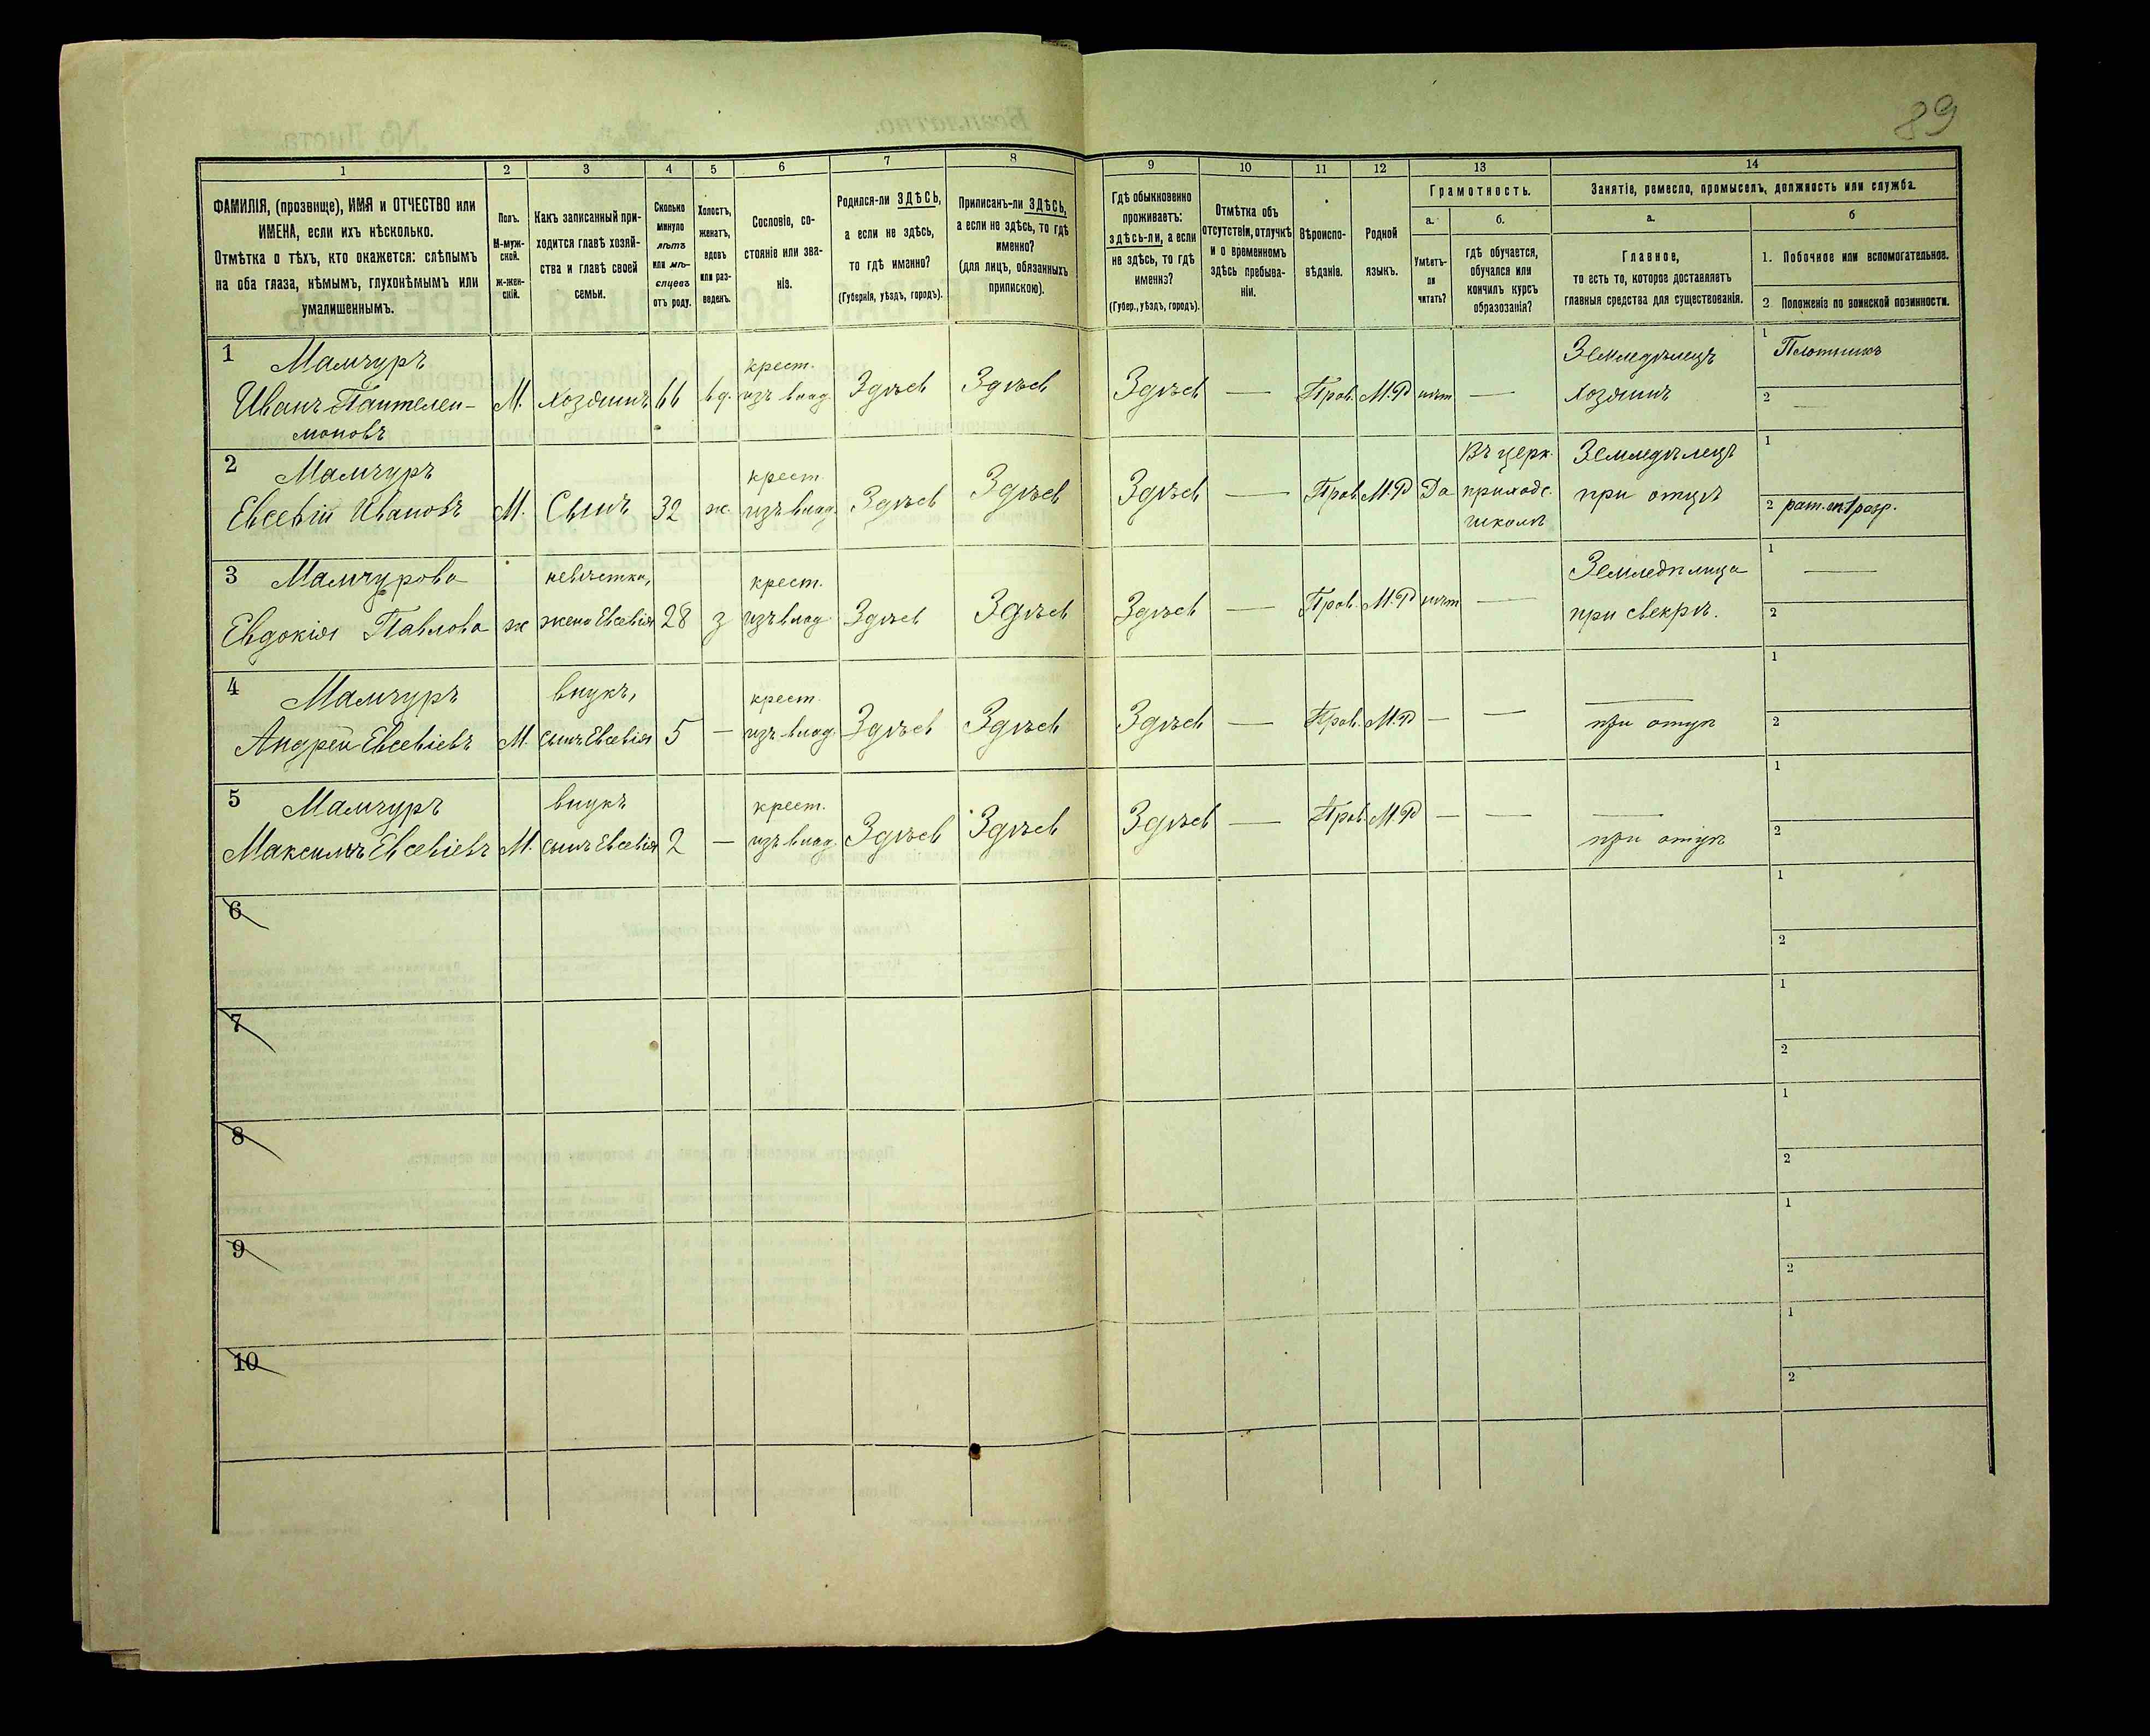 89
1 2 3 4 5 6 7 8 9 10 11 12 13 14
ФАМИЛІЯ, (прозвище), ИМЯ и ОТЧЕСТВО или
ИМЕНА, если ихъ нѣсколько.
Отмѣтка о тѣхъ, кто окажется: слѣпымъ
на оба глаза, нѣмымъ, глухонѣмымъ или
умалишеннымъ.
Полъ.
М-муж-
ской.
ж-жен-
скій.
Какъ записанный при-
ходится главѣ хозяй-
ства и главѣ своей
семьи.
Сколько
минуло
лѣтъ
или мѣ-
сяцевъ
отъ роду.
Холостъ,
женатъ,
вдовъ
или раз-
веденъ.
Сословіе, со-
стояніе или зва-
ніе.
Родился-ли ЗДѢСЬ,
а если не здѣсь,
то гдѣ именно?
(Губернія, уѣздъ, городъ).
Приписанъ-ли ЗДѢСЬ,
а если не здѣсь, то гдѣ
именно?
(для лицъ, обязанныхъ
припискою).
Гдѣ обыкновенно
проживаетъ:
здѣсь-ли, а если
не здѣсь, то гдѣ
именно?
(Губер., уѣздъ, городъ).
Отмѣтка объ
отсутствіи, отлучкѣ
и о временномъ
здѣсь пребыва-
ніи.
Вѣроиспо-
вѣданіе.
Родной
языкъ.
Грамотность.
а.
Умѣетъ-
ли
читать?
б.
гдѣ обучается,
обучался или
кончилъ курсъ
образованія?
Занятіе, ремесло, промыселъ, должность или служба.
а.
Главное,
то есть то, которое доставляетъ
главныя средства для существованія.
б
1. Побочное или вспомогательное.
2 Положеніе по воинской повинности.
1 Мамчуръ крест. Земледѣлецъ 1 Плотникъ
Иванъ Пантелеи- М. хозяинъ 66 вд. изъ влад. Здѣсь Здѣсь Здѣсь — Прав. М.Р нѣтъ — хозяинъ 2 —
моновъ
2 Мамчуръ крест. Въ церк. Земледѣлецъ 1
Евсевій Ивановъ М. Сынъ 32 ж. изъ влад. Здѣсь Здѣсь Здѣсь — Прав. М.Р Да приходс. при отцѣ 2 рат. оп. 1 разр.
школѣ
3 Мамчурова невѣстка, крест. Земледѣлица 1 —
Евдокія Павлова ж жена Евсевія 28 з изъ влад. Здѣсь Здѣсь Здѣсь — Прав. М.Р нѣтъ — при свекрѣ. 2
4 Мамчуръ внукъ, крест. — 1
Андрей Евсевіевъ М. сынъ Евсевія 5 — изъ влад. Здѣсь Здѣсь Здѣсь — Прав. М.Р — — при отцѣ 2
5 Мамчуръ внукъ крест. — 1
Максимъ Евсевіевъ М. сынъ Евсевія 2 — изъ влад. Здѣсь Здѣсь Здѣсь — Прав. М.Р — — при отцѣ 2
6 1
2
7 1
2
8 1
2
9 1
2
10 1
2